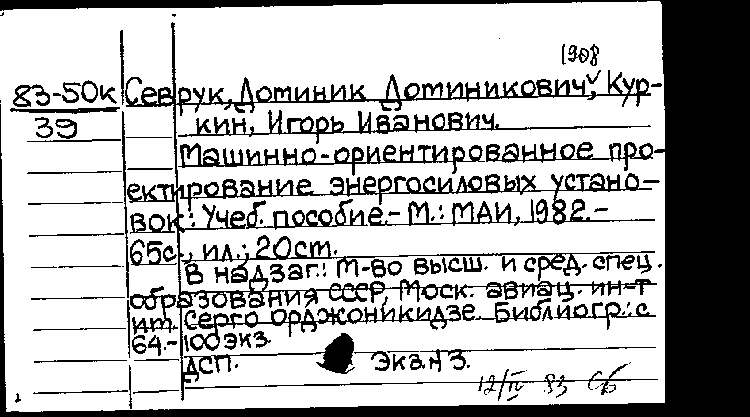 1908
83-50к Севрук, Доминик Доминикович, Кур-
39 кин, Игорь Иванович.
Машинно-ориентированное про-
ектирование энергосиловых устано-
вок: Учеб. пособие.- М.: МАИ, 1982.-
65с., ил.; 20см.
В надзаг.: М-во высш. и сред. спец.
образования СССР, Моск. авиац. ин-т
им. Серго Орджоникидзе. Библиогр.: с
64.- 100 экз.
ДСП. Экз.№3.
12/IV 83